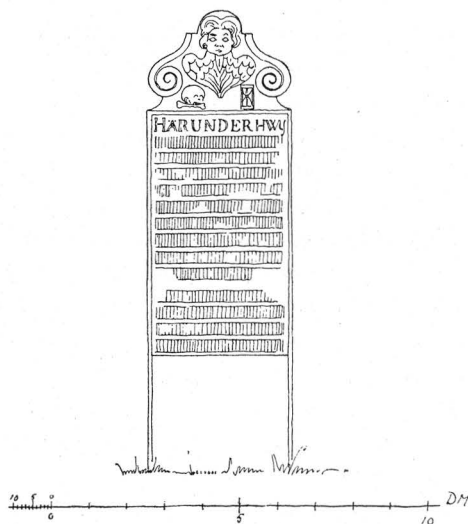 HÄRUNDERHWI
10 5 0
0 5 10 DM